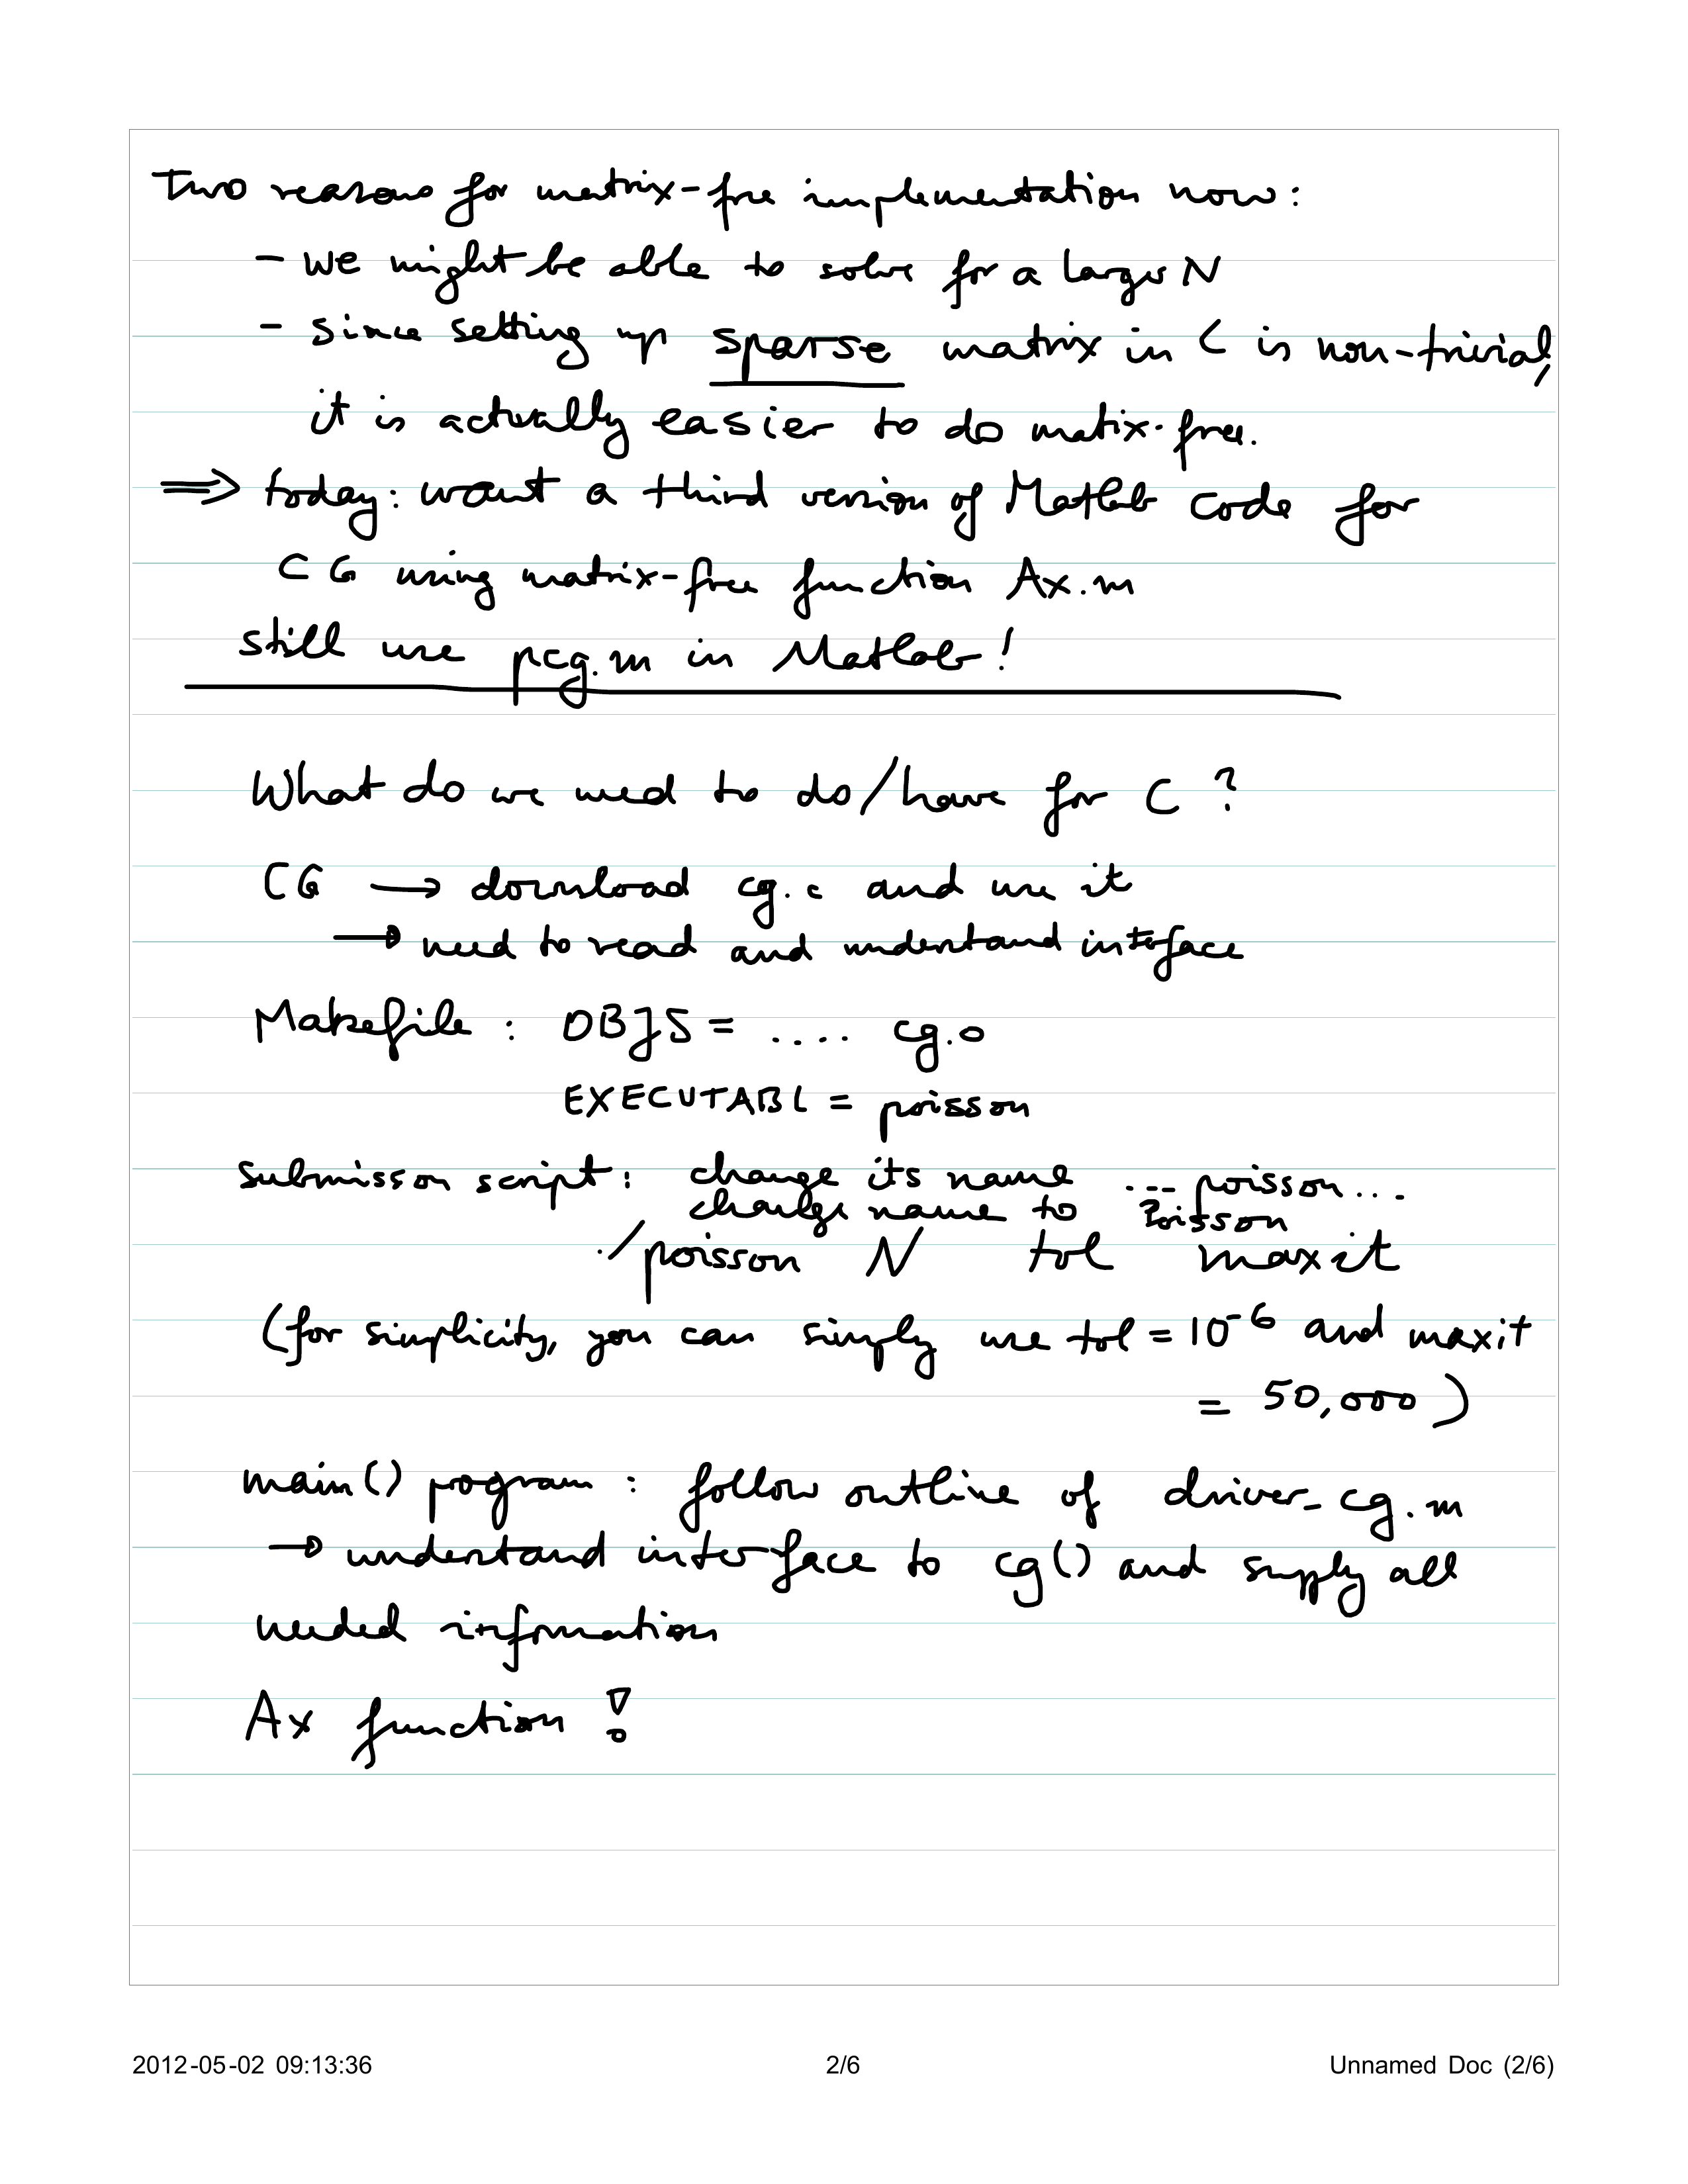 Two reasons for matrix-free implementation now:
- we might be able to solve for a larger N
- since setting up sparse matrix in C is non-trivial,
it is actually easier to do matix-free.
⇒ today: want a third version of Matlab code for
CG using matrix-free function Ax.m
still use pcg.m in Matlab!
What do we need to do/have for C ?
CG → download cg.c and use it
→ need to read and understand interface
Makefile : OBJS = .... cg.o
EXECUTABL = poisson
submisson script: change its name ... poisson...
change name to Poisson
./poisson N tol maxit
(for simplicity, you can simply use tol = 10⁻⁶ and maxit
= 50,000)
main() program : follow outline of driver_cg.m
→ understand interface to cg() and supply all
needed information
Ax function !
2012-05-02 09:13:36 2/6 Unnamed Doc (2/6)